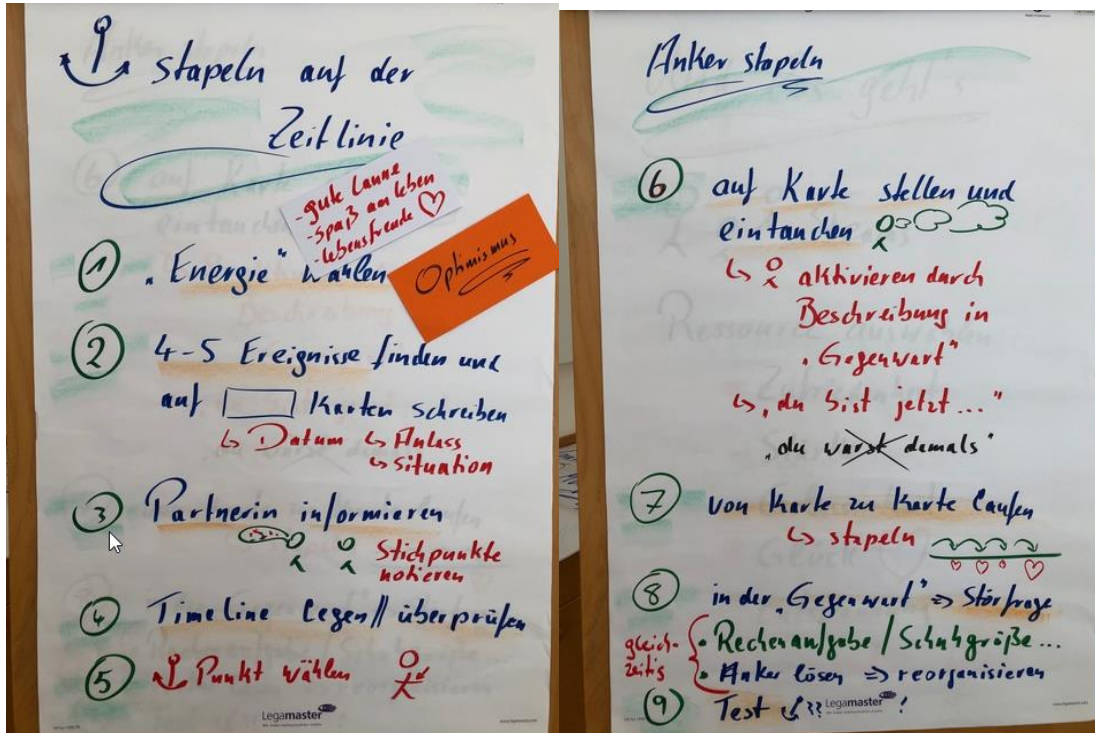 stapeln auf der
Zeitlinie
- gute Laune
- Spaß am Leben
- Lebensfreude
Optimismus
1 „Energie“ wählen
2 4-5 Ereignisse finden und
auf Karten schreiben
↳ Datum ↳ Anlass
↳ Situation
3 Partnerin informieren
Stichpunkte
notieren
4 Timeline legen // überprüfen
5 Punkt wählen
Legamaster
Anker stapeln
6 auf Karte stellen und
eintauchen
↳ aktivieren durch
Beschreibung in
„Gegenwart“
↳ „du bist jetzt..."
„du warst damals"
7 von Karte zu Karte laufen
↳ stapeln
8 in der „Gegenwart“ => Störfrage
gleich-
zeitig
• Rechenaufgabe / Schuhgröße...
• Anker lösen => reorganisieren
9 Test ?? !
Legamaster